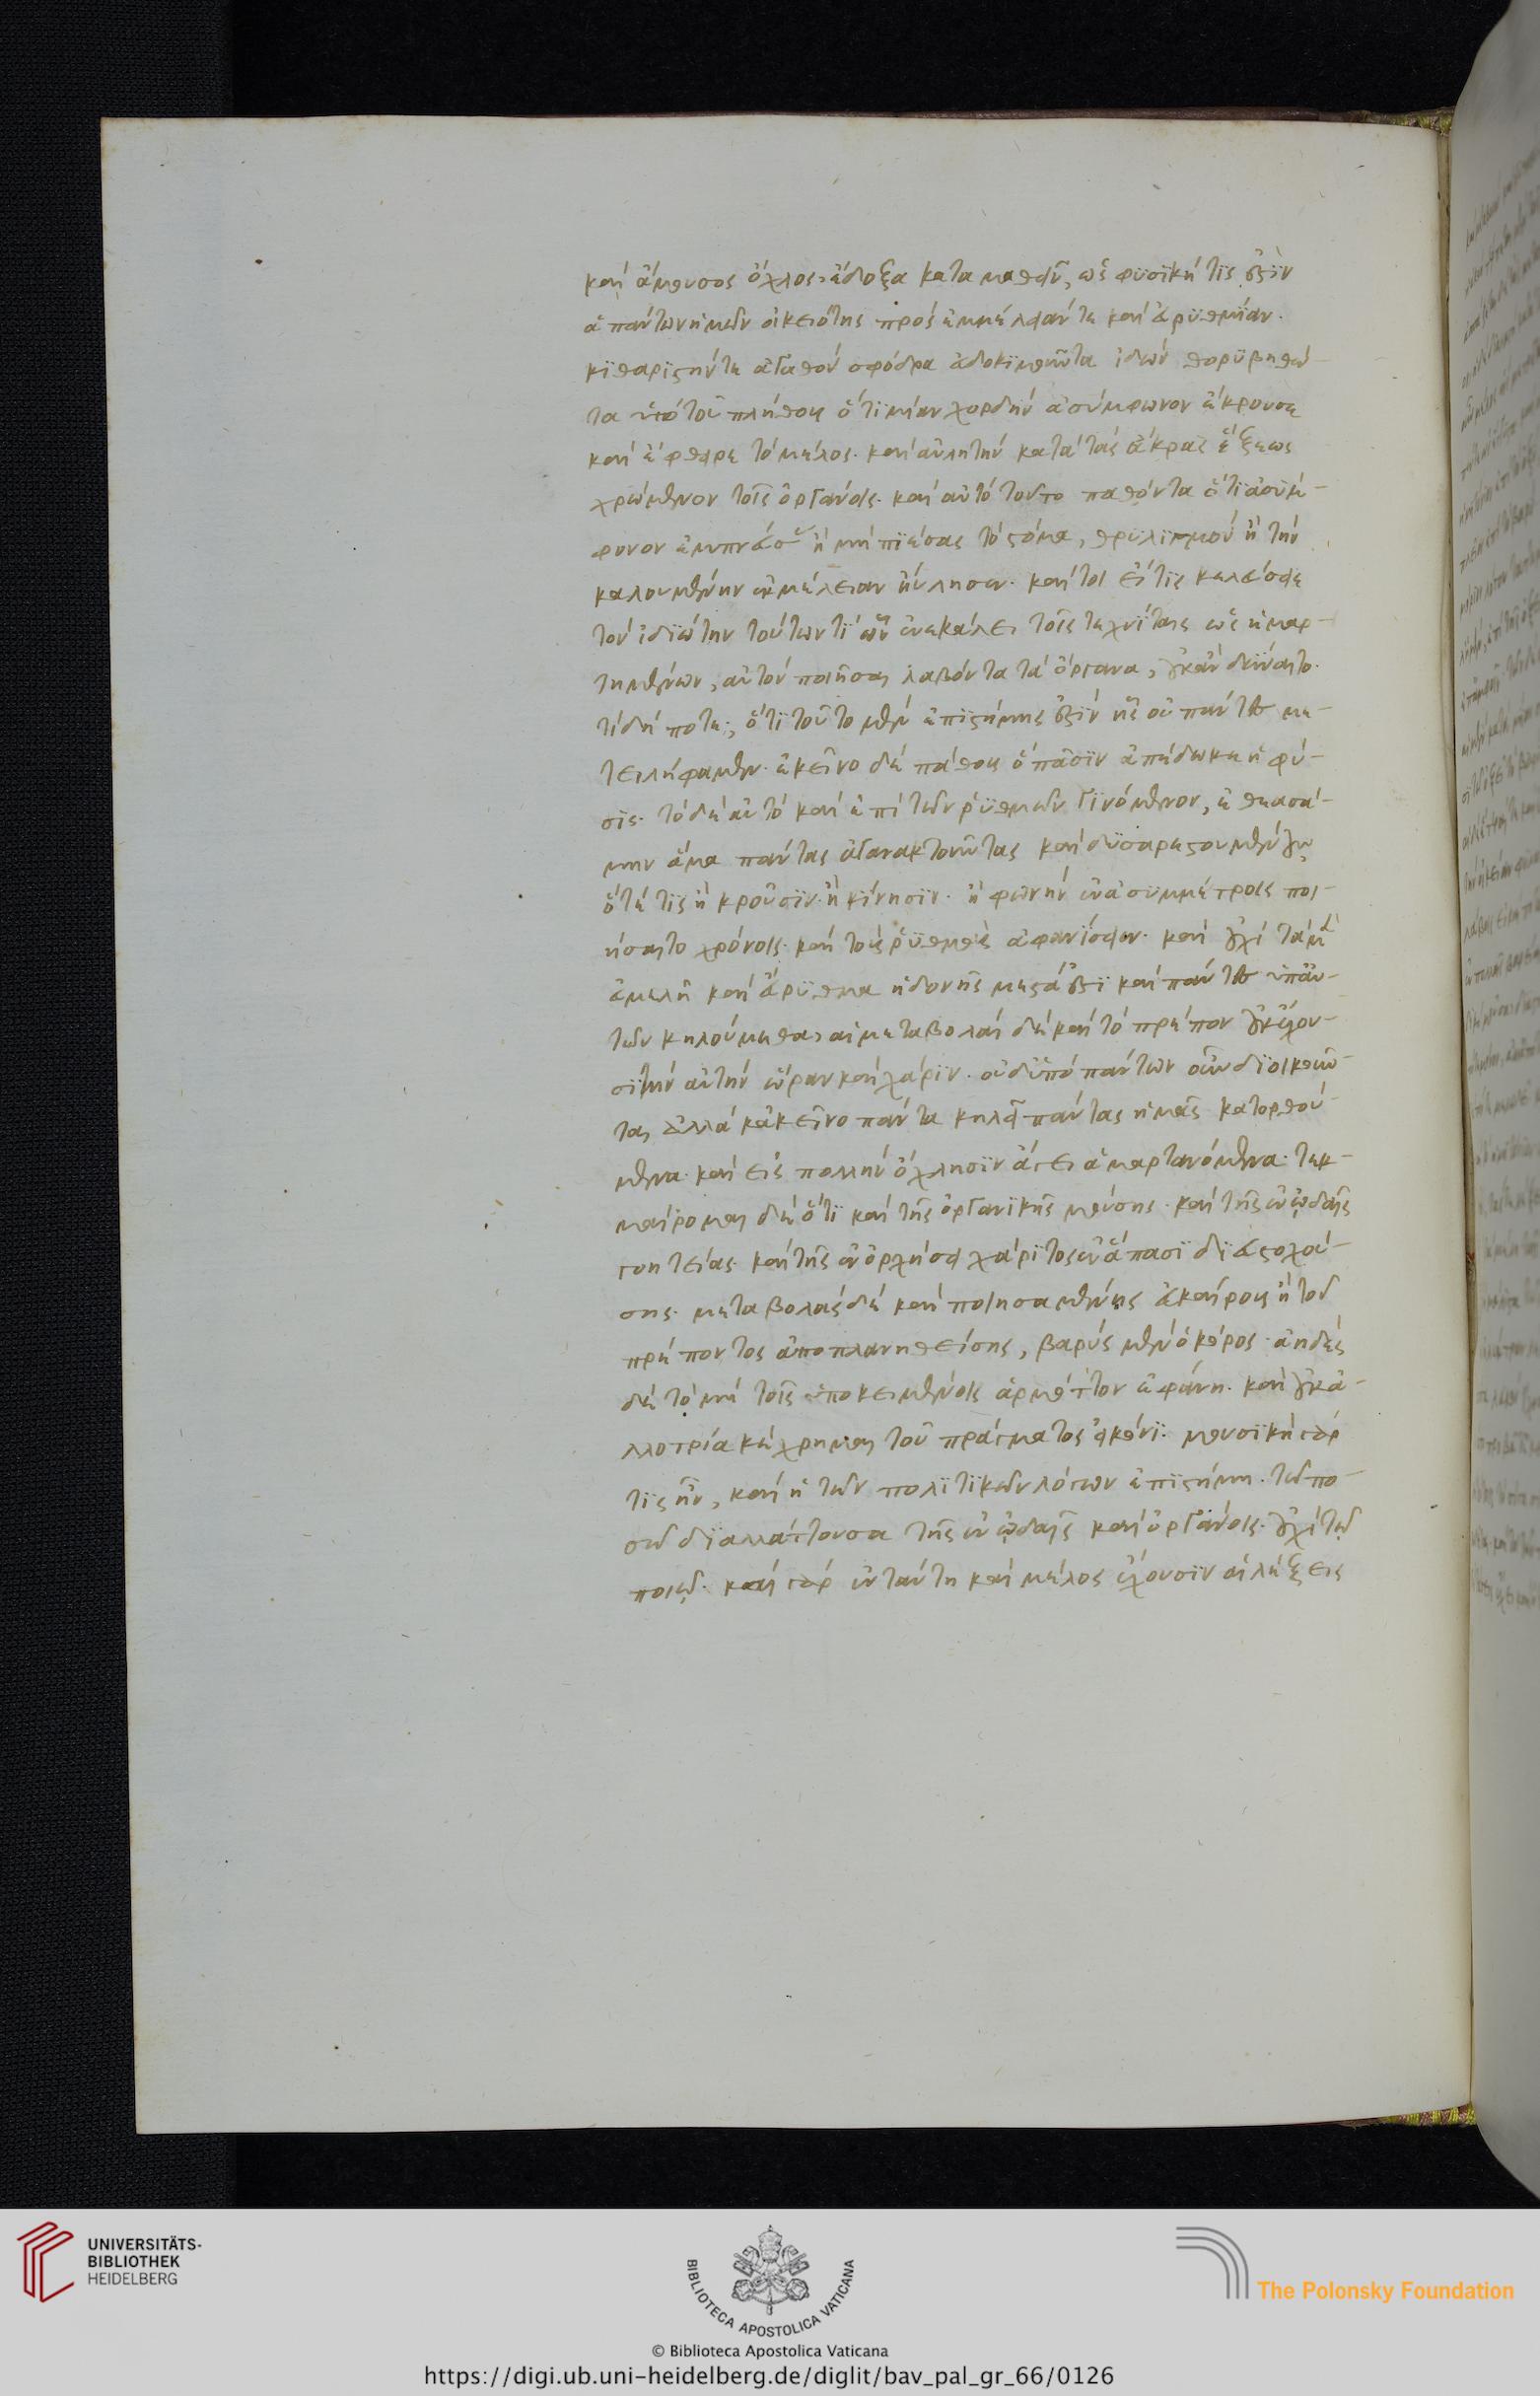 καὶ ἄμουσος ὄχλος. ἔδοξα καταμαθεῖν, ὡς φυσική τίς ἐστιν
ἁπάντων ἡμῶν οἰκειότης πρὸς ἐμμέλειάν τε καὶ εὐρυθμίαν.
κιθαριστήν τε ἀγαθὸν σφόδρα εὐδοκιμοῦντα ἰδὼν θορυβηθέν-
τα ὑπὸ τοῦ πλήθους ὅτι μίαν χορδὴν ἀσύμφωνον ἔκρουσε
καὶ ἔφθειρε τὸ μέλος. καὶ αὐλητὴν κατὰ τὰς ἄκρας ἕξεως
χρώμενον τοῖς ὀργάνοις. καὶ αὐτὸ τοῦτο παθόντα ὅτι ἀσύμ-
φωνον ἐμπνεύσας ἢ μὴ πιέσας τὸ στόμα, θρυλιγμὸν ἢ τὴν
καλουμένην ἐκμέλειαν ηὔλησεν. καίτοι εἴ τις κελεύσειε
τὸν ἰδιώτην τούτων τι ὧν ἐνεκάλει τοῖς τεχνίταις ὡς ἡμαρ-
τημένων, αὐτὸν ποιῆσαι λαβόντα τὰ ὄργανα, οὐκ ἂν δύναιτο.
τί δή ποτε; ὅτι τοῦτο μὲν ἐπιστήμης ἐστὶν ἧς οὐ πάντες με-
τειλήφαμεν. ἐκεῖνο δὲ πάθους ὃ πᾶσιν ἀπέδωκεν ἡ φύ-
σις. τὸ δὲ αὐτὸ καὶ ἐπὶ τῶν ῥυθμῶν γινόμενον, ἐθεασά-
μην ἅμα πάντας ἀγανακτοῦντας καὶ δυσαρεστουμένους
ὅτε τις ἢ κροῦσιν. ἢ κίνησιν. ἢ φωνὴν ἐν ἀσυμμέτροις ποι-
ήσαιτο χρόνοις. καὶ τοὺς ῥυθμοὺς ἀφανίσειεν. καὶ οὐχὶ τὰ μὲν
ἐμμελῆ καὶ εὔρυθμα ἡδονῆς μεστά ἐστι καὶ πάντες ὑπ' αὐ-
τῶν κηλούμεθα. αἱ μεταβολαὶ δὲ καὶ τὸ πρέπον οὐκ ἔχου-
σι τὴν αὐτὴν ὥραν καὶ χάριν. οὐδ' ὑπὸ πάντων
ται ἀλλὰ κἀκεῖνο πάντα κηλεῖ πάντας ἡμᾶς κατορθού-
μενα. καὶ εἰς πολλὴν ὄχλησιν ἄγει ἁμαρτανόμενα. τεκ-
μαίρομαι δὲ ὅτι καὶ τῆς ὀργανικῆς μούσης. καὶ τῆς ἐν ᾠδαῖς
γοητείας. καὶ τῆς ἐν ὀρχήσει χάριτος ἐν ἅπασι διευστοχού-
σης. μεταβολὰς δὲ καὶ ποιησαμένης εὐκαίρους ἢ τοῦ
πρέποντος ἀποπλανηθείσης, βαρὺς μὲν ὁ κόρος. ἀηδὲς
δὲ τὸ μὴ τοῖς ὑποκειμένοις ἁρμόττον ἐφάνη. καὶ οὐκ ἀ-
λλοτρίᾳ κέχρημαι τοῦ πράγματος εἰκόνι. μουσικὴ γάρ
τις ἦν, καὶ ἡ τῶν πολιτικῶν λόγων ἐπιστήμη. τῷ πο-
σῷ διαλλάττουσα τῆς ἐν ᾠδαῖς καὶ ὀργάνοις. οὐχὶ τῷ
ποιῷ. καὶ γὰρ ἐν ταύτῃ καὶ μέλος ἔχουσιν αἱ λέξεις
UNIVERSITÄTS-
BIBLIOTHEK
HEIDELBERG
BIBLIOTECA APOSTOLICA VATICANA
The Polonsky Foundation
© Biblioteca Apostolica Vaticana
https://digi.ub.uni-heidelberg.de/diglit/bav_pal_gr_66/0126